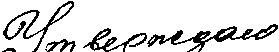 Утверждаю